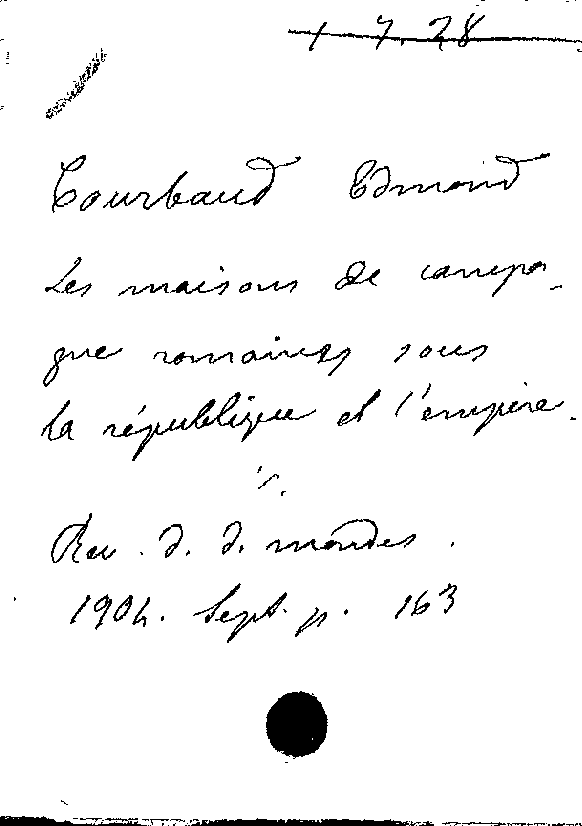 1 7.28
Courbaud Edmond
Les maisons de campa-
gne romaines sous
la république et l'empire.
Rev. d. d. mondes.
1904. Sept. p. 163